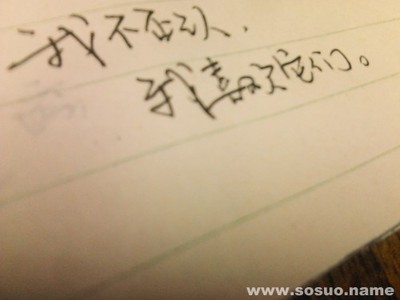 我不否认，
我喜欢它们。
www.sosuo.name